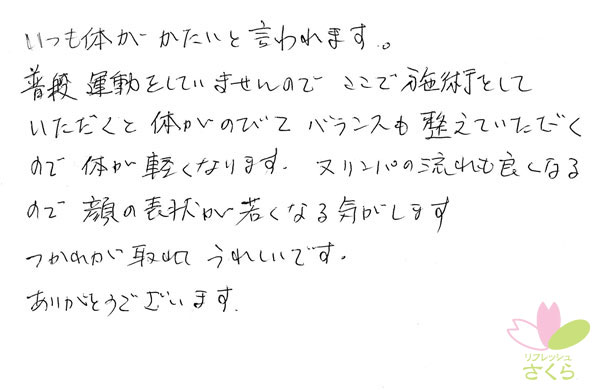 いつも体がかたいと言われます。
普段運動をしていませんので ここで施術をして
いただくと体がのびて バランスも整えていただく
ので体が軽くなります. 又リンパの流れも良くなる
ので顔の表状が若くなる気がします
つかれが取れて うれしいです.
ありがとうございます.
リフレッシュ
さくら